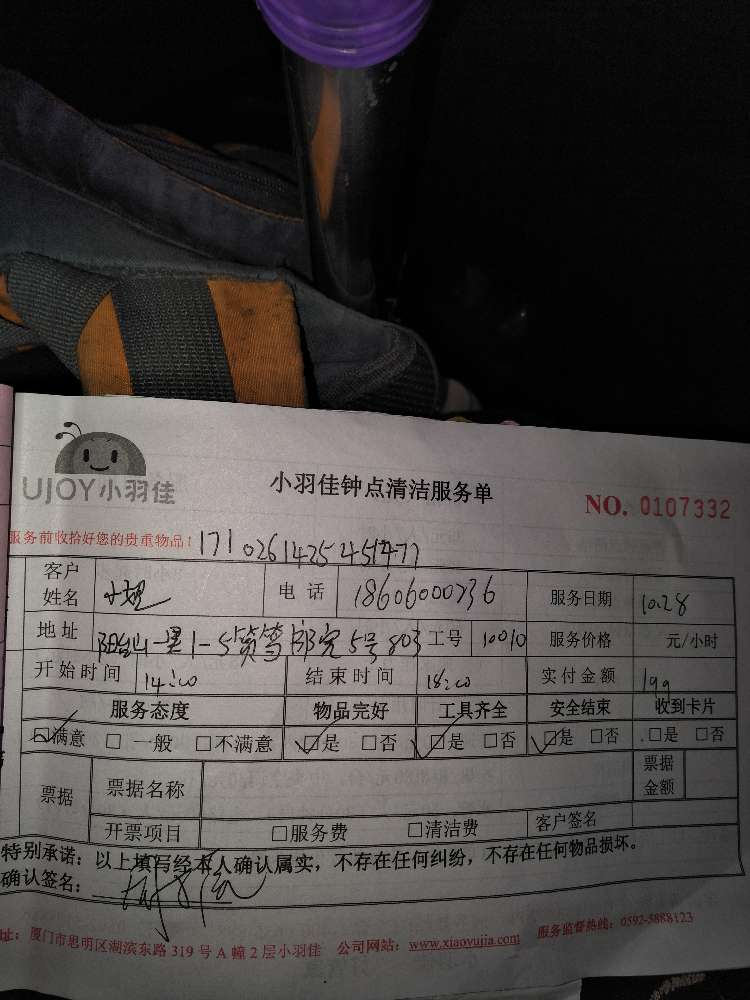 UJOY小羽佳
小羽佳钟点清洁服务单
NO. 0107332
服务前收拾好您的贵重物品! 1710261425451477
客户姓名 电话 18606000736 服务日期 10.28
地址 一里1-5 5号803 工号 10010 服务价格 元/小时
开始时间 14:00 结束时间 18:00 实付金额 199
服务态度 物品完好 工具齐全 安全结束 收到卡片
☑满意 □一般 □不满意 ☑是 □否 ☑是 □否 ☑是 □否 □是 □否
票据 票据名称 票据金额
开票项目 □服务费 □清洁费 客户签名
特别承诺：以上填写经本人确认属实，不存在任何纠纷，不存在任何物品损坏。
确认签名：
址：厦门市思明区湖滨东路 319 号 A 幢 2 层小羽佳 公司网站：www.xiaoyujia.com 服务监督热线：0592-5888123